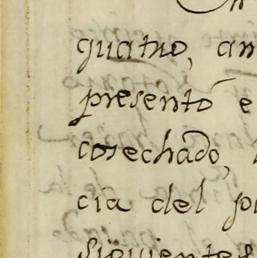 quatro, an
presentó e
cosechado,
cia del p
siguientes